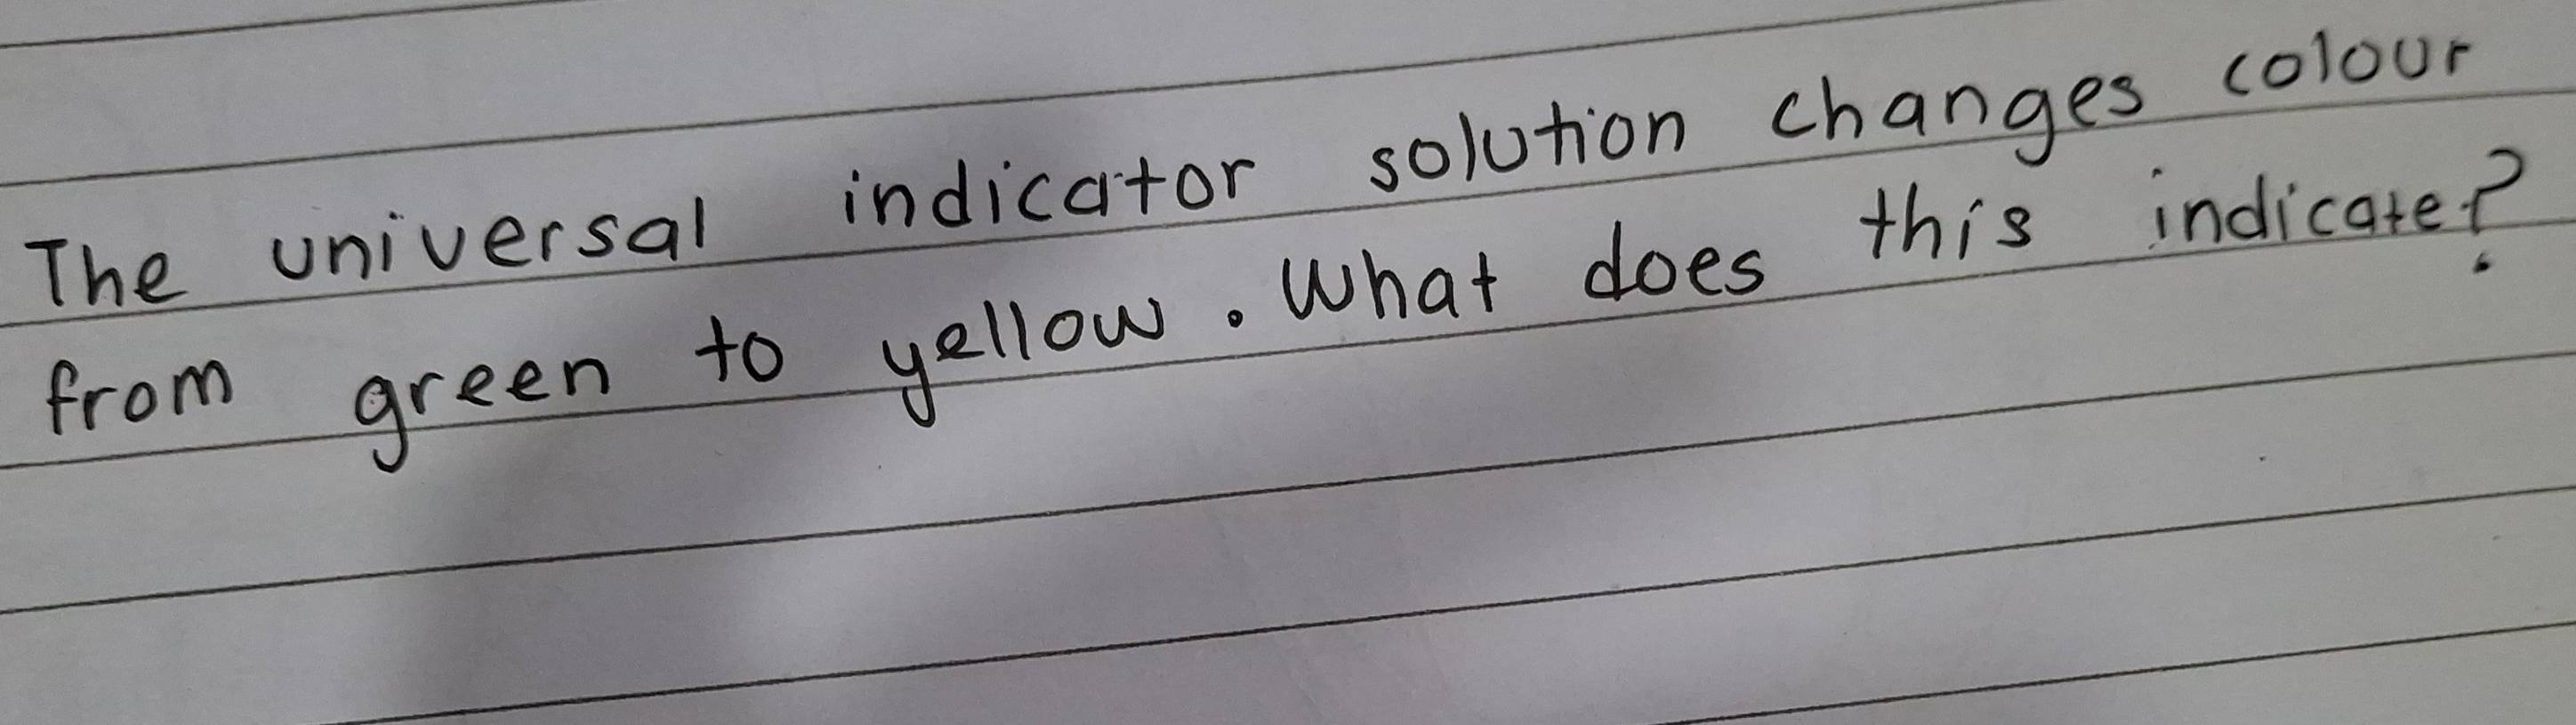 The universal indicator solution changes colour
from green to yellow. What does this indicate?